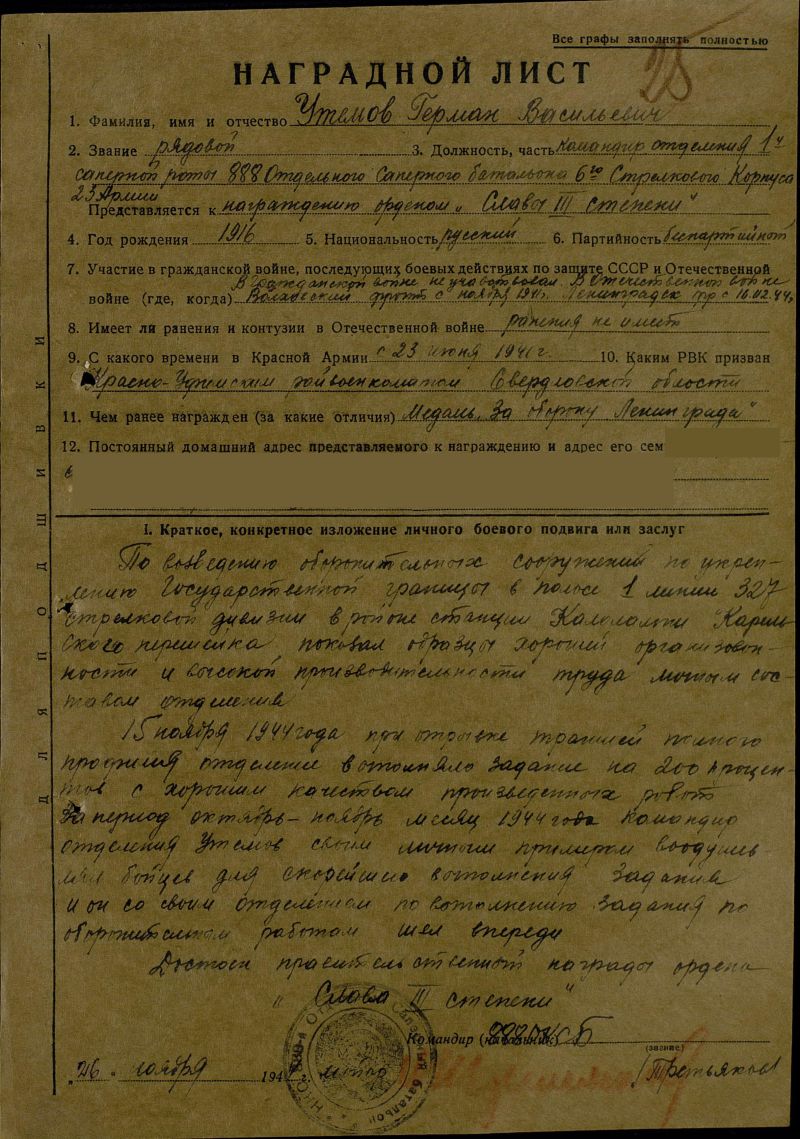 Все графы заполнять полностью
28
НАГРАДНОЙ ЛИСТ
1. Фамилия, имя и отчество Утемов Герман Васильевич
2. Звание рядовой 3. Должность, часть командир отделения 1й
саперной роты 888 Отдельного Саперного батальона 6го Стрелкового Корпуса
23 Армии
Представляется к награждению орденом „Славы III степени"
4. Год рождения 1916 5. Национальность русский 6. Партийность беспартийный
7. Участие в гражданской войне, последующих боевых действиях по защите СССР и Отечественной
В Гражданской войне не участвовал. В Отечественной войне
войне (где, когда) Волховский фронт с ноября 1941г. Ленинградск фр с 16.02.44г
8. Имеет ли ранения и контузии в Отечественной войне ранения не имеет
9. С какого времени в Красной Армии с 23 июня 1941г. 10. Каким РВК призван
Красно-Уфимским райвоенкоматом Свердловской области
11. Чем ранее награжден (за какие отличия) Медаль „За оборону Ленинграда"
12. Постоянный домашний адрес представляемого к награждению и адрес его сем
I. Краткое, конкретное изложение личного боевого подвига или заслуг
По возведению оборонительных сооружений по укреп-
лению Государственной границы в полосе 1 линии 327
стрелковой дивизии в районе станции Карель-
ского перешейка, показал образцы хорошей организован-
ности и высокой производительности труда личным сос-
тавом отделения
15 ноября 1944 года при отрывке траншей полного
профиля отделение выполняло задание на 200 процен-
тов с хорошим качеством произведенных работ
За период октябрь-ноябрь месяц 1944 года командир
отделения Утемов своим личным примером воодушев-
лял бойцев для скорейшего выполнения задания
и он со своим отделением по выполнению задания по
оборонительным работам шел впереди
Достоин правительственной награды ордена
„Слава III степени"
Командир (начальник) 888 ОСБ
(звание)
„26" ноября 194 г. /Третьяков/
ДЛЯ ПОДШИВКИ